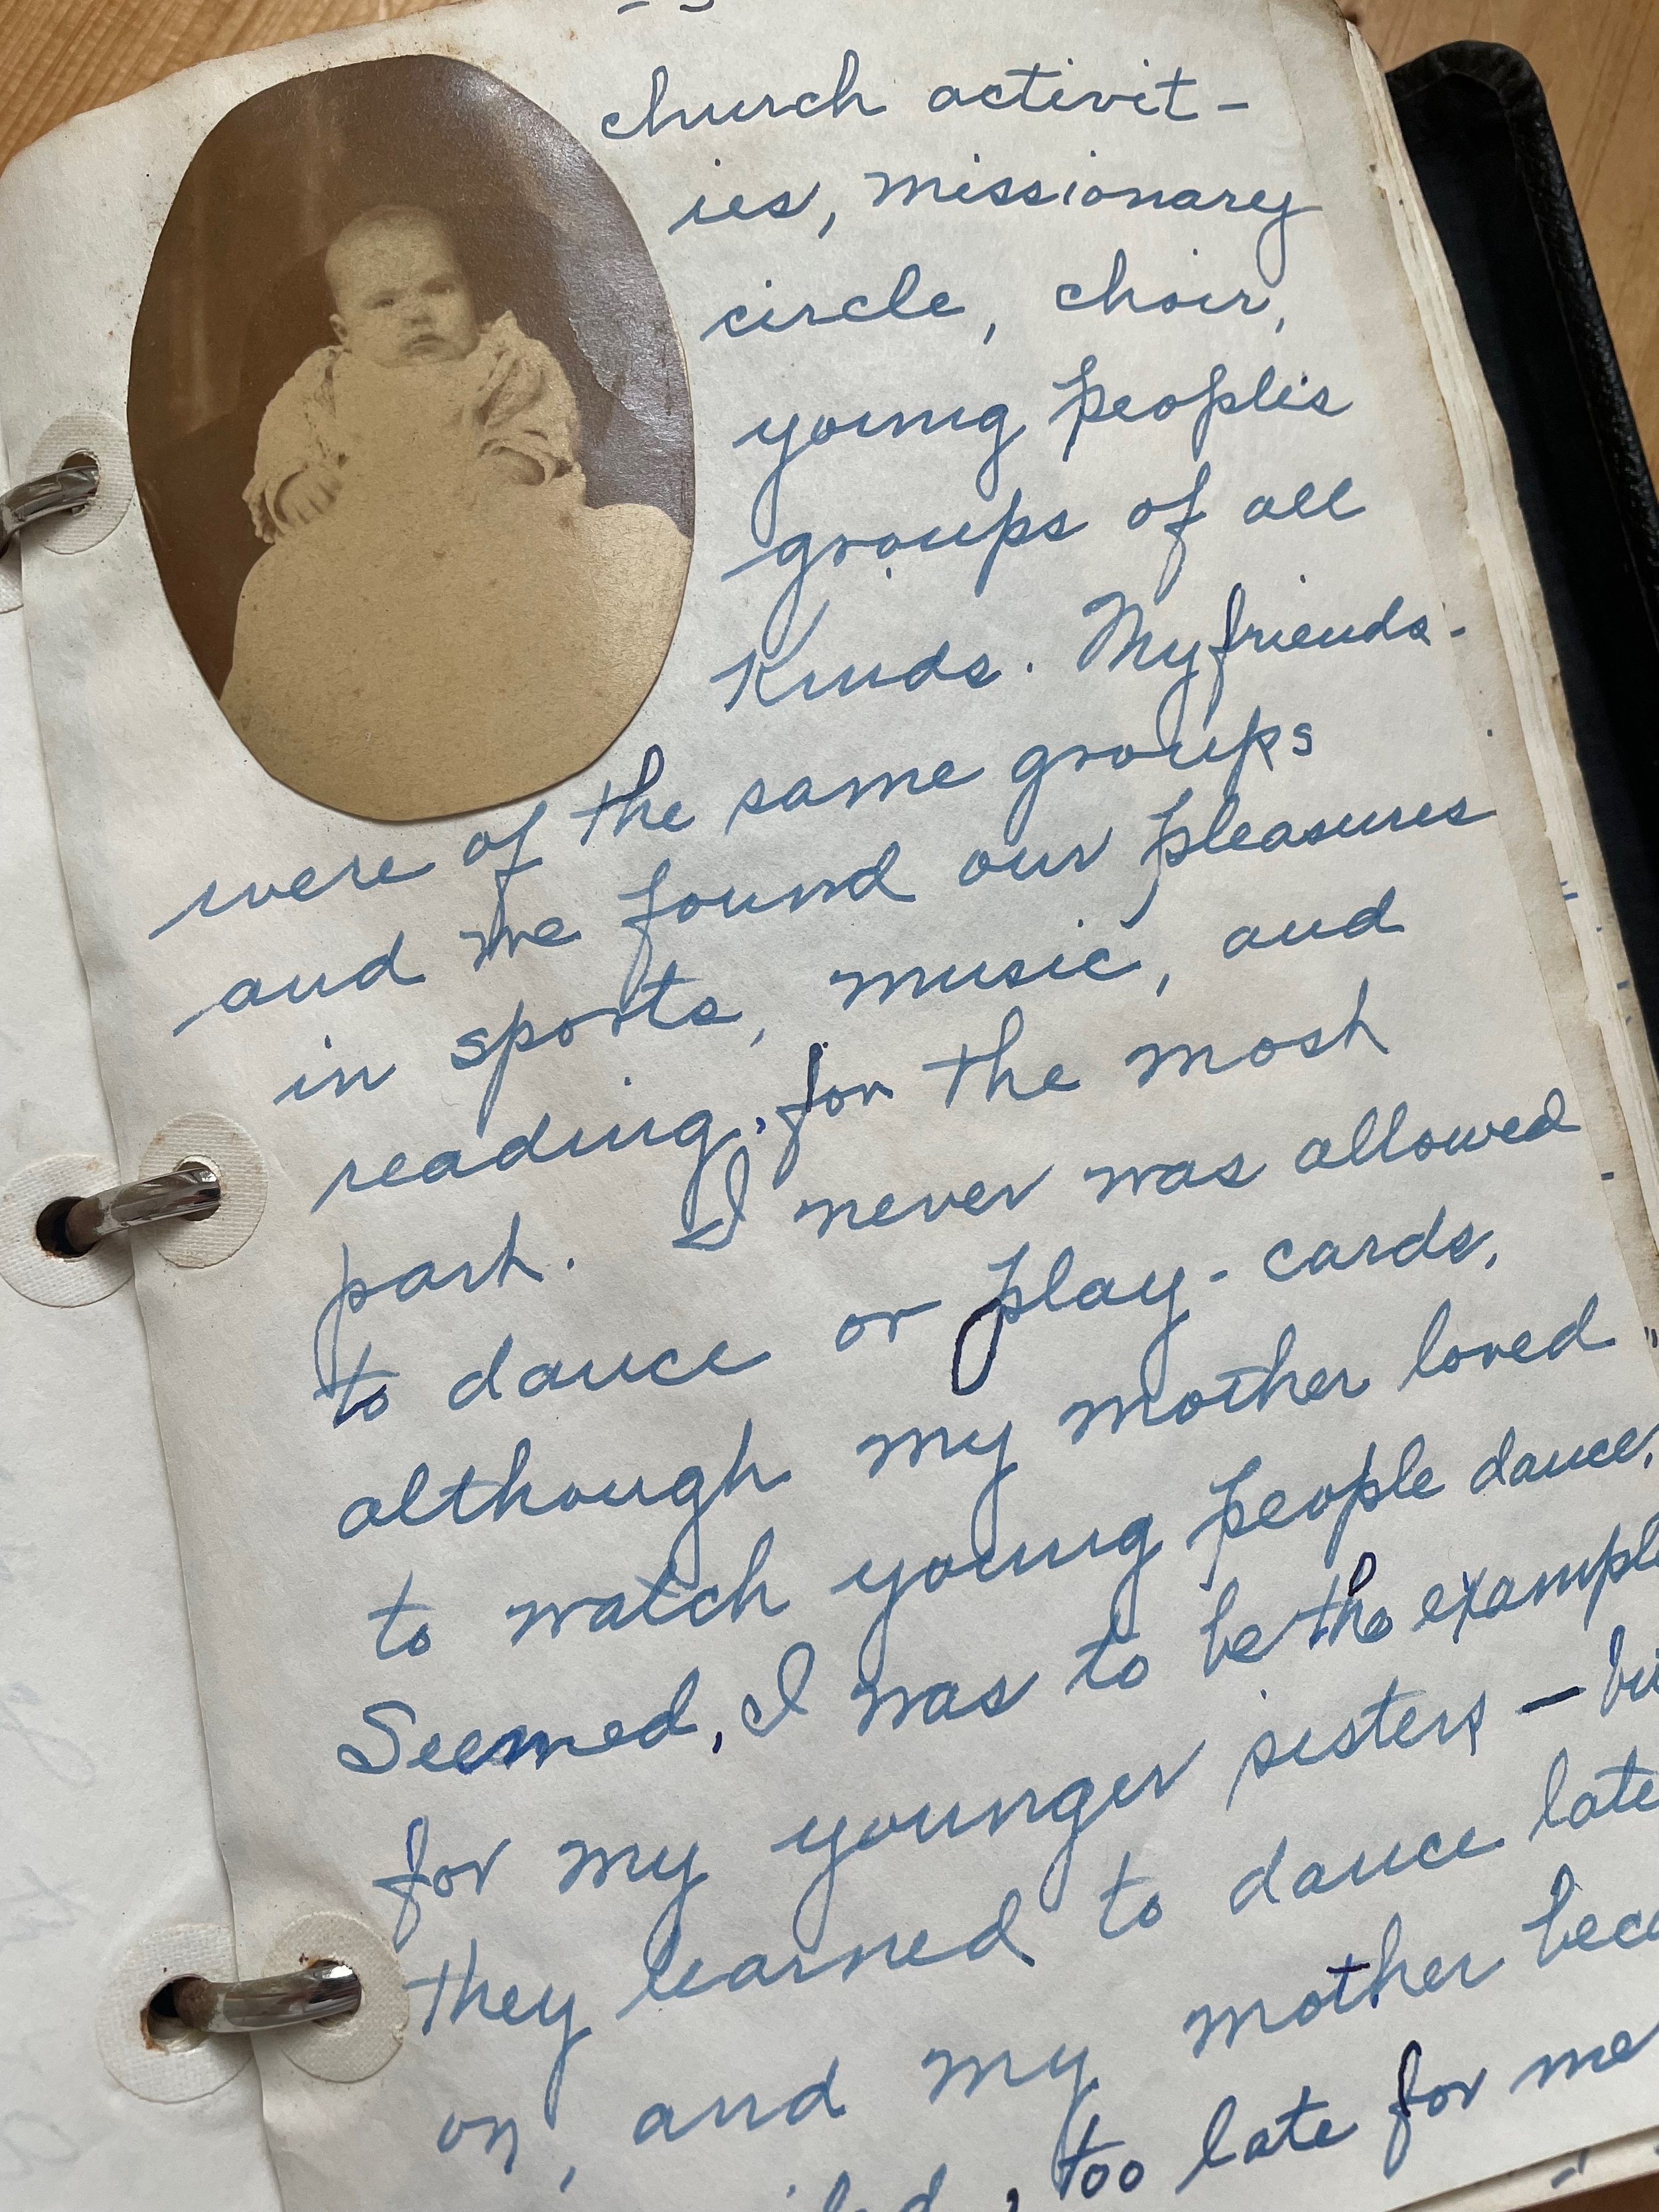 church activit-
ies, missionary
circle, choir,
young peoples
groups of all
Kinds. My friends-
were of the same groups
and we found our pleasures
in sports, music, and
reading, for the most
part. I never was allowed
to dance or play-cards,
although my mother loved
to watch young people dance.
Seemed, I was to be the example
for my younger sisters — bu
they learned to dance late
on, and my mother beca
, too late for me